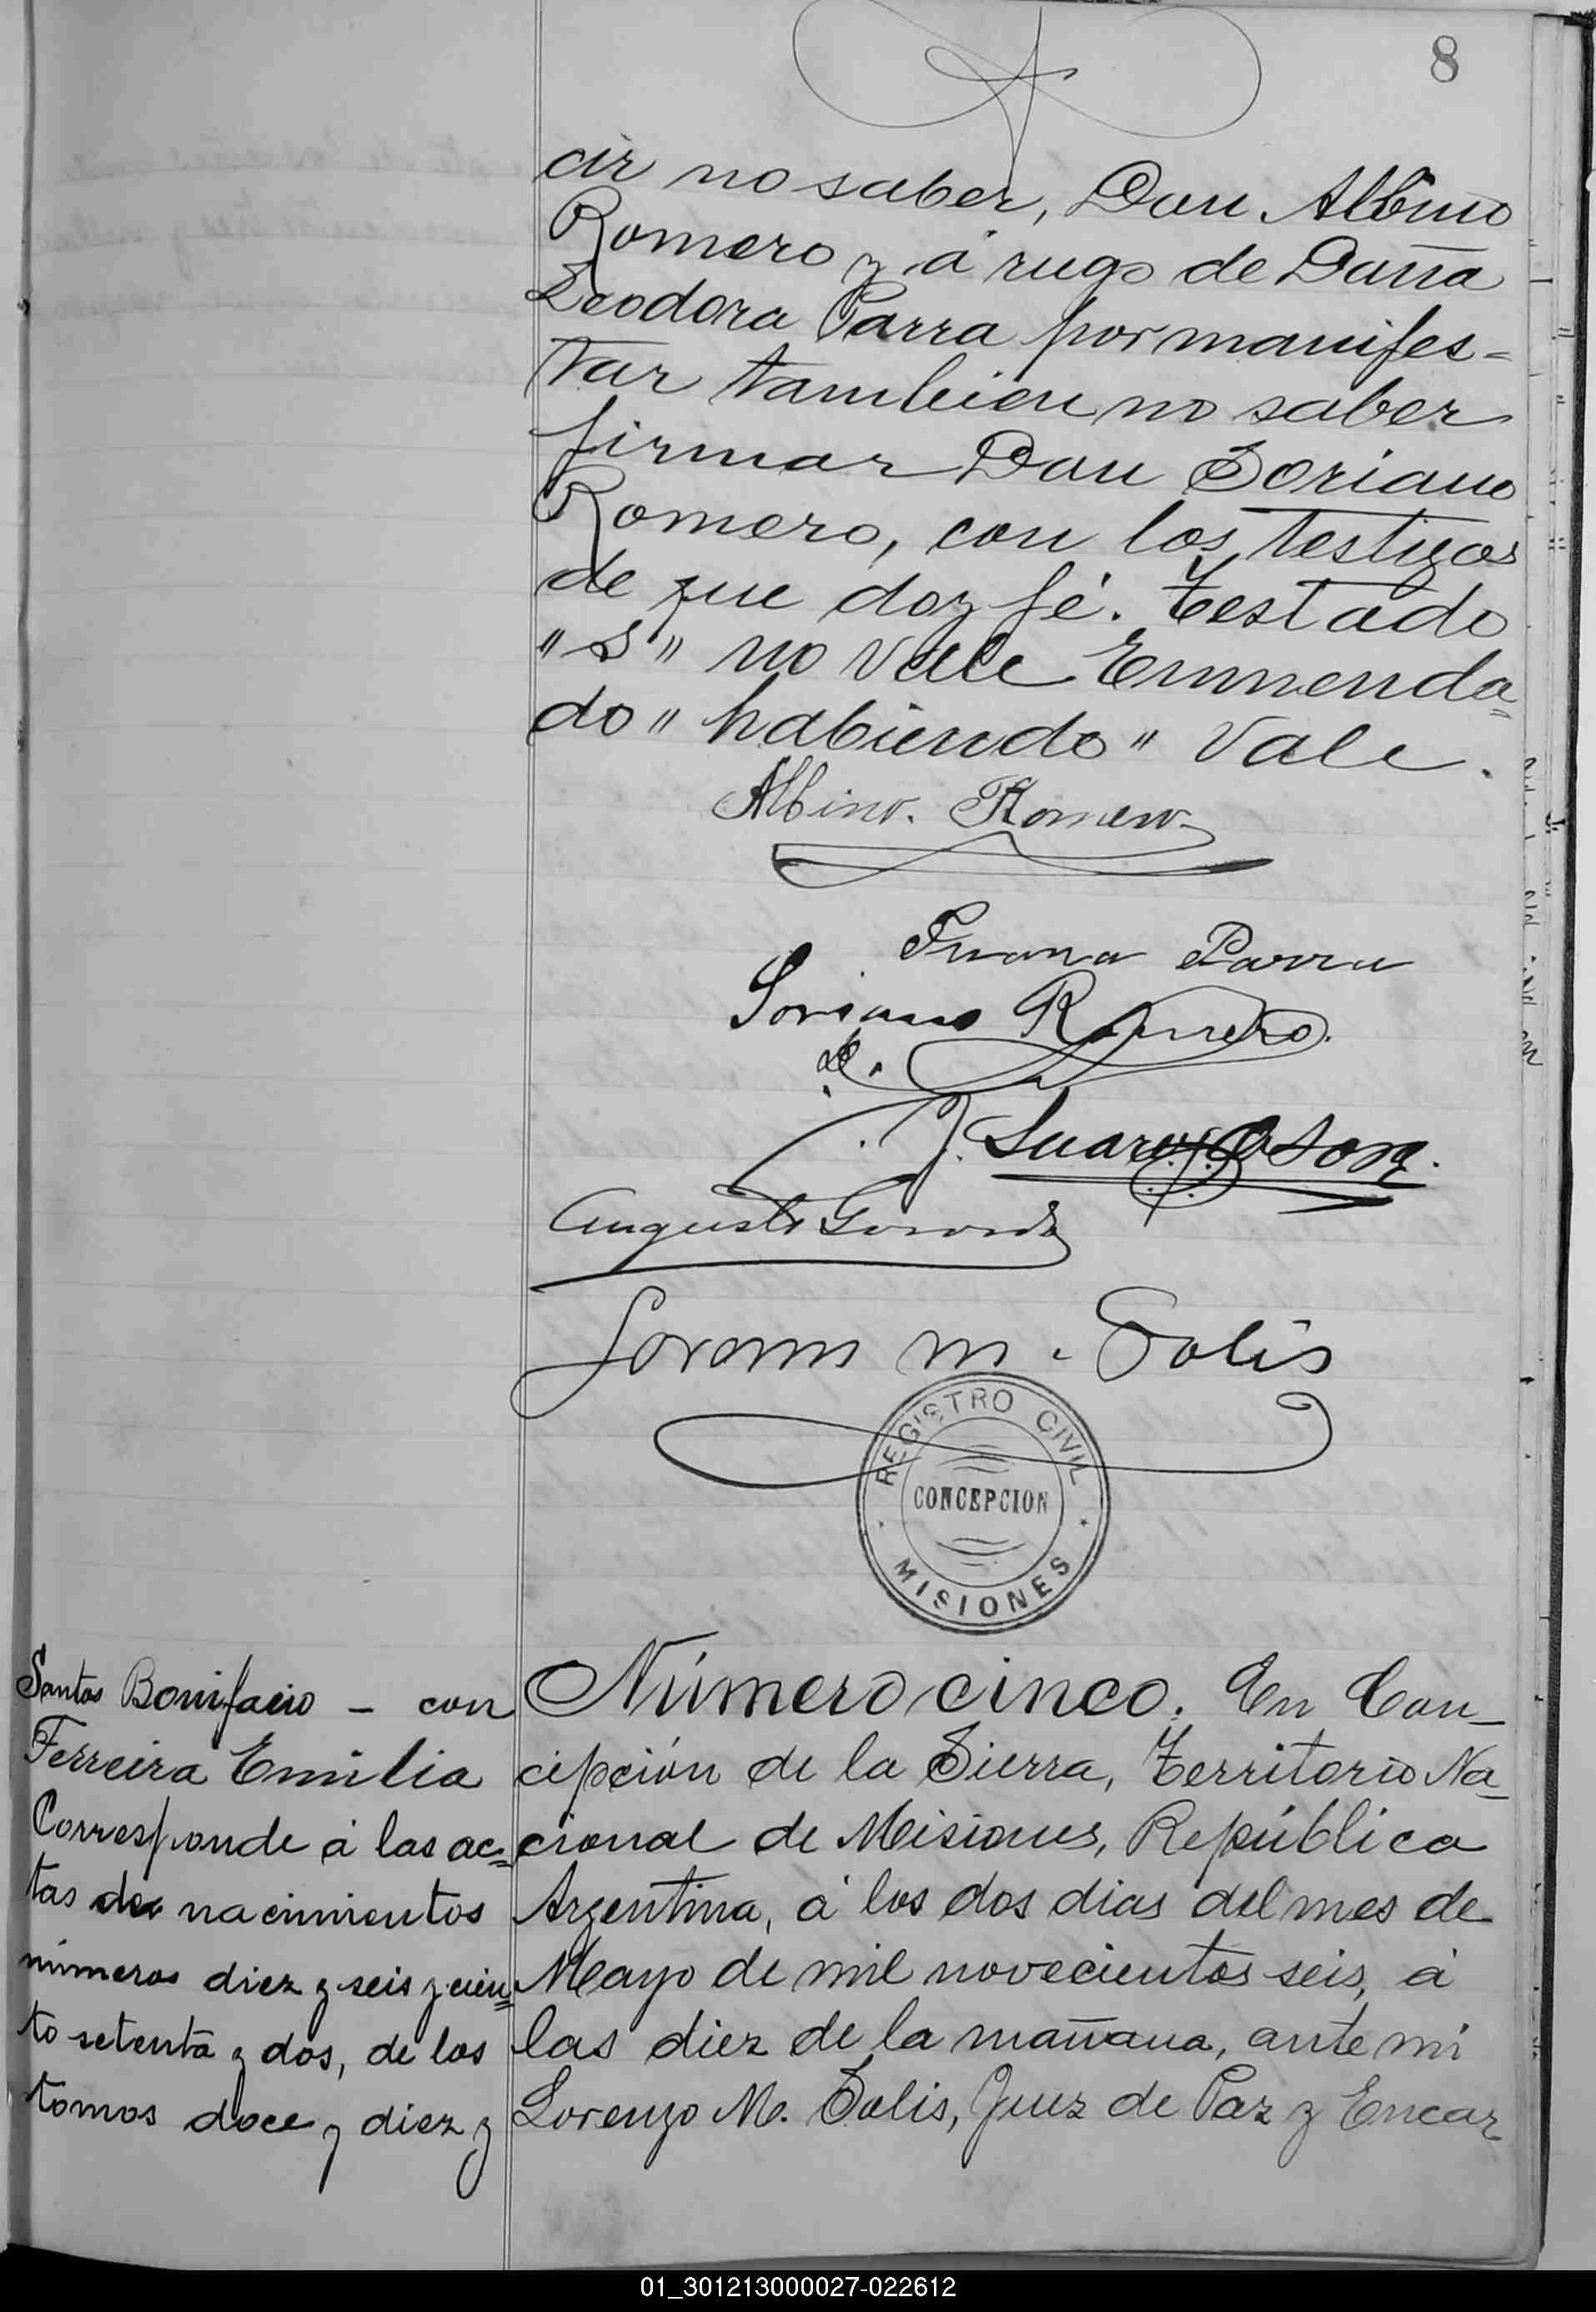 8
cir no saber, Don Albino
Romero y á rugo de Doña
Leodora Parra por manifes=
tar tambien no saber
firmar Don Soriano
Romero, con los testigos
de que doy fé. Testado
"S" no vale Enmenda=
do "habiendo" Vale.
Albino. Romero
Juana Parra
Soriano Romero.
J. Suarez
Augusto
Lorenzo M. Solis
REGISTRO CIVIL
CONCEPCION
MISIONES
Santos Bonifacio - con
Ferreira Emilia
Corresponde á las ac=
tas de nacimientos
números diez y seis y cien=
to setenta y dos, de los
tomos doce y diez y
Número cinco. En Con_
cipción de la Sierra, Territorio Na_
cional de Misiones, República
Argentina, á los dos dias del mes de
Mayo de mil novecientos seis, á
las diez de la mañana, ante mi
Lorenzo M. Solis, Juez de Paz y Encar
01_301213000027-022612